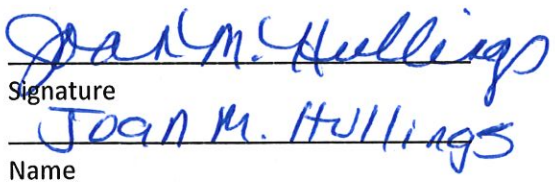 Joan M. Hullings
Signature
Joan M. Hullings
Name